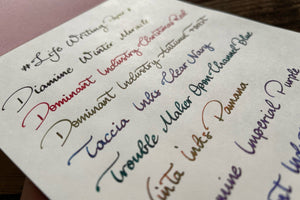 # Life Writing Paper
Diamine Winter Miracle
Dominant Industry Christmas Red
Dominant Industry Autumn
Taccia Inks Clear Navy
Trouble Maker Open Channel Blue
Vinta Inks Pamana
Imperial Purple